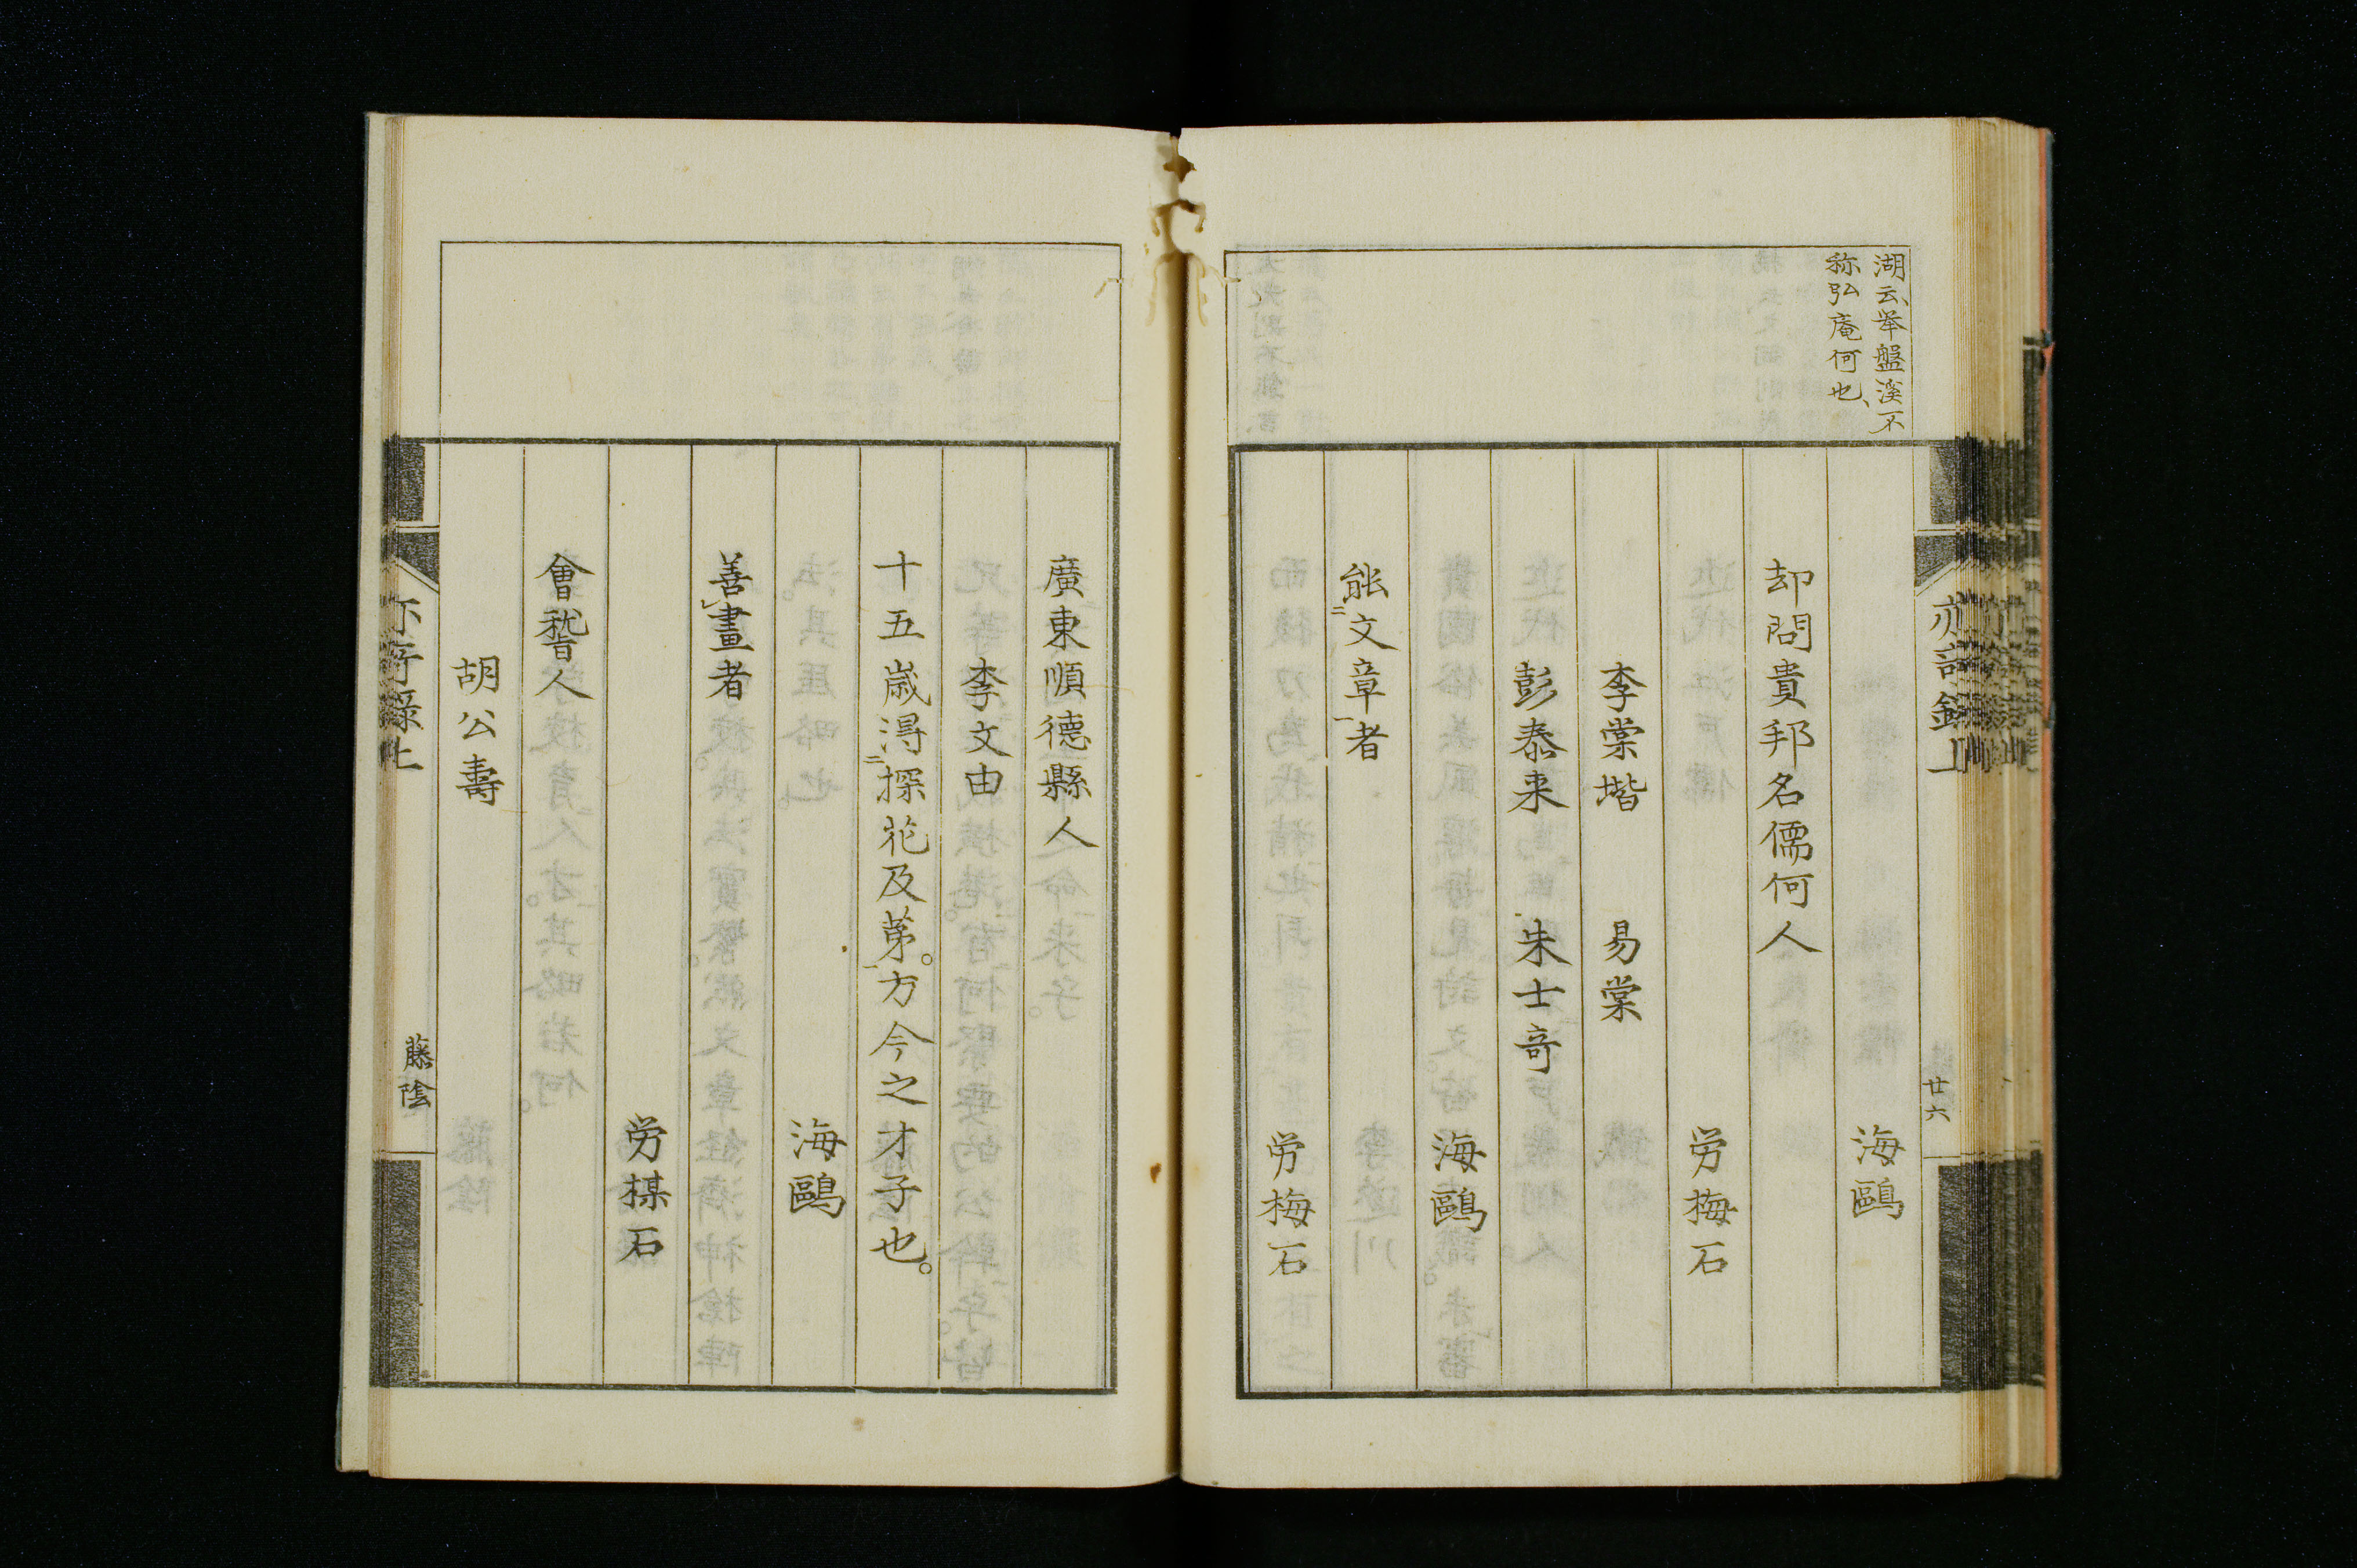 湖云、举盤溪不
称弘庵何也、
海鷗
却問貴邦名儒何人
労梅石
李棠堦 易棠
彭泰来 朱士竒
海鷗
能〻文章者
労梅石
亦奇錄上
廿六
廣東順德縣人
李文由
十五歳得探花及第。方今之才子也。
海鷗
善畫者
労楳石
會嵇人
胡公壽
亦奇録上
藤陰